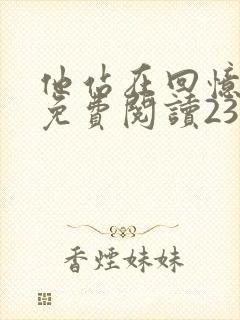 他站在回憶
免費閱讀23
香煙妹妹